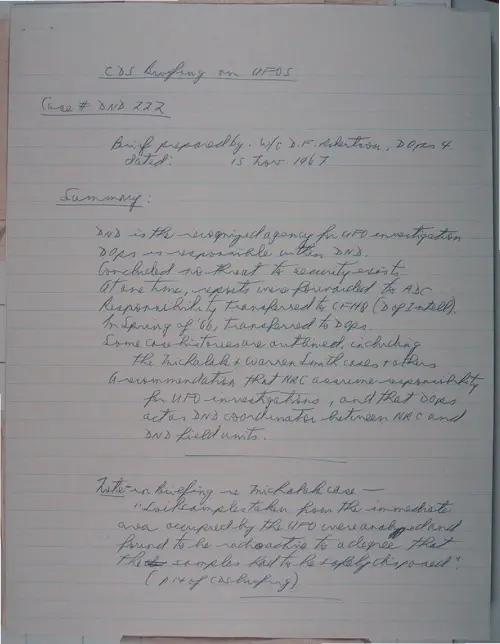 CDS Briefing on UFOS
Case # DND 222
Brief prepared by: W/C D.F. Robertson, DOps 4
dated: 15 Nov. 1967
Summary:
DND is the recognized agency for UFO investigation
DOps is responsible within DND.
Concluded no threat to security exists,
At one time, reports were forwarded to ADC
Responsibility transferred to CFHQ (D of Intell).
In Spring of '66, transferred to DOps.
Some case histories are outlined, including
the Michalak & Warren Smith cases & others
A recommendation that NRC assume responsibility
for UFO investigations, and that DOps
act as DND coordinator between NRC and
DND field units.
Note - in Briefing re Michalak case -
"Soil samples taken from the immediate
area occupied by the UFO were analyzed and
found to be radioactive to a degree that
the samples had to be safely disposed".
(p 14 of CDS briefing)